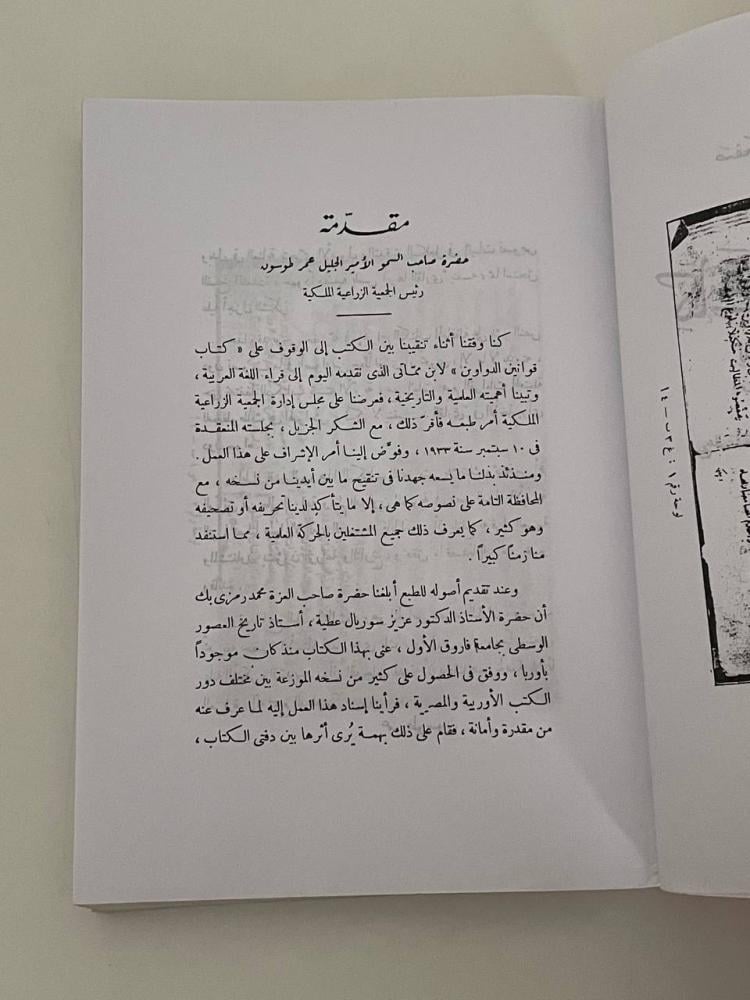 مقدّمة
حضرة صاحب السمو الأمير الجليل عمر طوسون
رئيس الجمعية الزراعية الملكية
كنا وفقنا أثناء تنقيبنا بين الكتب إلى الوقوف على « كتاب
قوانين الدواوين » لابن ممّاتى الذى نقدمه اليوم إلى قراء اللغة العربية ،
وتبينا أهميته العلمية والتاريخية ، فعرضنا على مجلس إدارة الجمعية الزراعية
الملكية أمر طبعه فأقرّ ذلك ، مع الشكر الجزيل ، بجلسته المنعقدة
فى ١٠ سبتمبر سنة ١٩٣٣ ، وفوّض إلينا أمر الإشراف على هذا العمل .
ومنذئذ بذلنا ما يسعه جهدنا فى تنقيح ما بين أيدينا من نسخه ، مع
المحافظة التامة على نصوصه كما هى ، إلا ما يتأكد لدينا تحريفه أو تصحيفه
وهو كثير ، كما يعرف ذلك جميع المشتغلين بالحركة العلمية ، مما استنفد
منا زمنًا كبيرًا .
وعند تقديم أصوله للطبع أبلغنا حضرة صاحب العزة محمد رمزى بك
أن حضرة الأستاذ الدكتور عزيز سوريال عطية ، أستاذ تاريخ العصور
الوسطى بجامعة فاروق الأول ، عنى بهذا الكتاب منذ كان موجودًا
بأوربا ، ووفق فى الحصول على كثير من نسخه الموزعة بين مختلف دور
الكتب الأوربية والمصرية ، فرأينا إسناد هذا العمل إليه لما عرف عنه
من مقدرة وأمانة ، فقام على ذلك بهمة يُرى أثرها بين دفتى الكتاب ،
لوحة رقم ١ : غ ٣ ب – ٤ ا